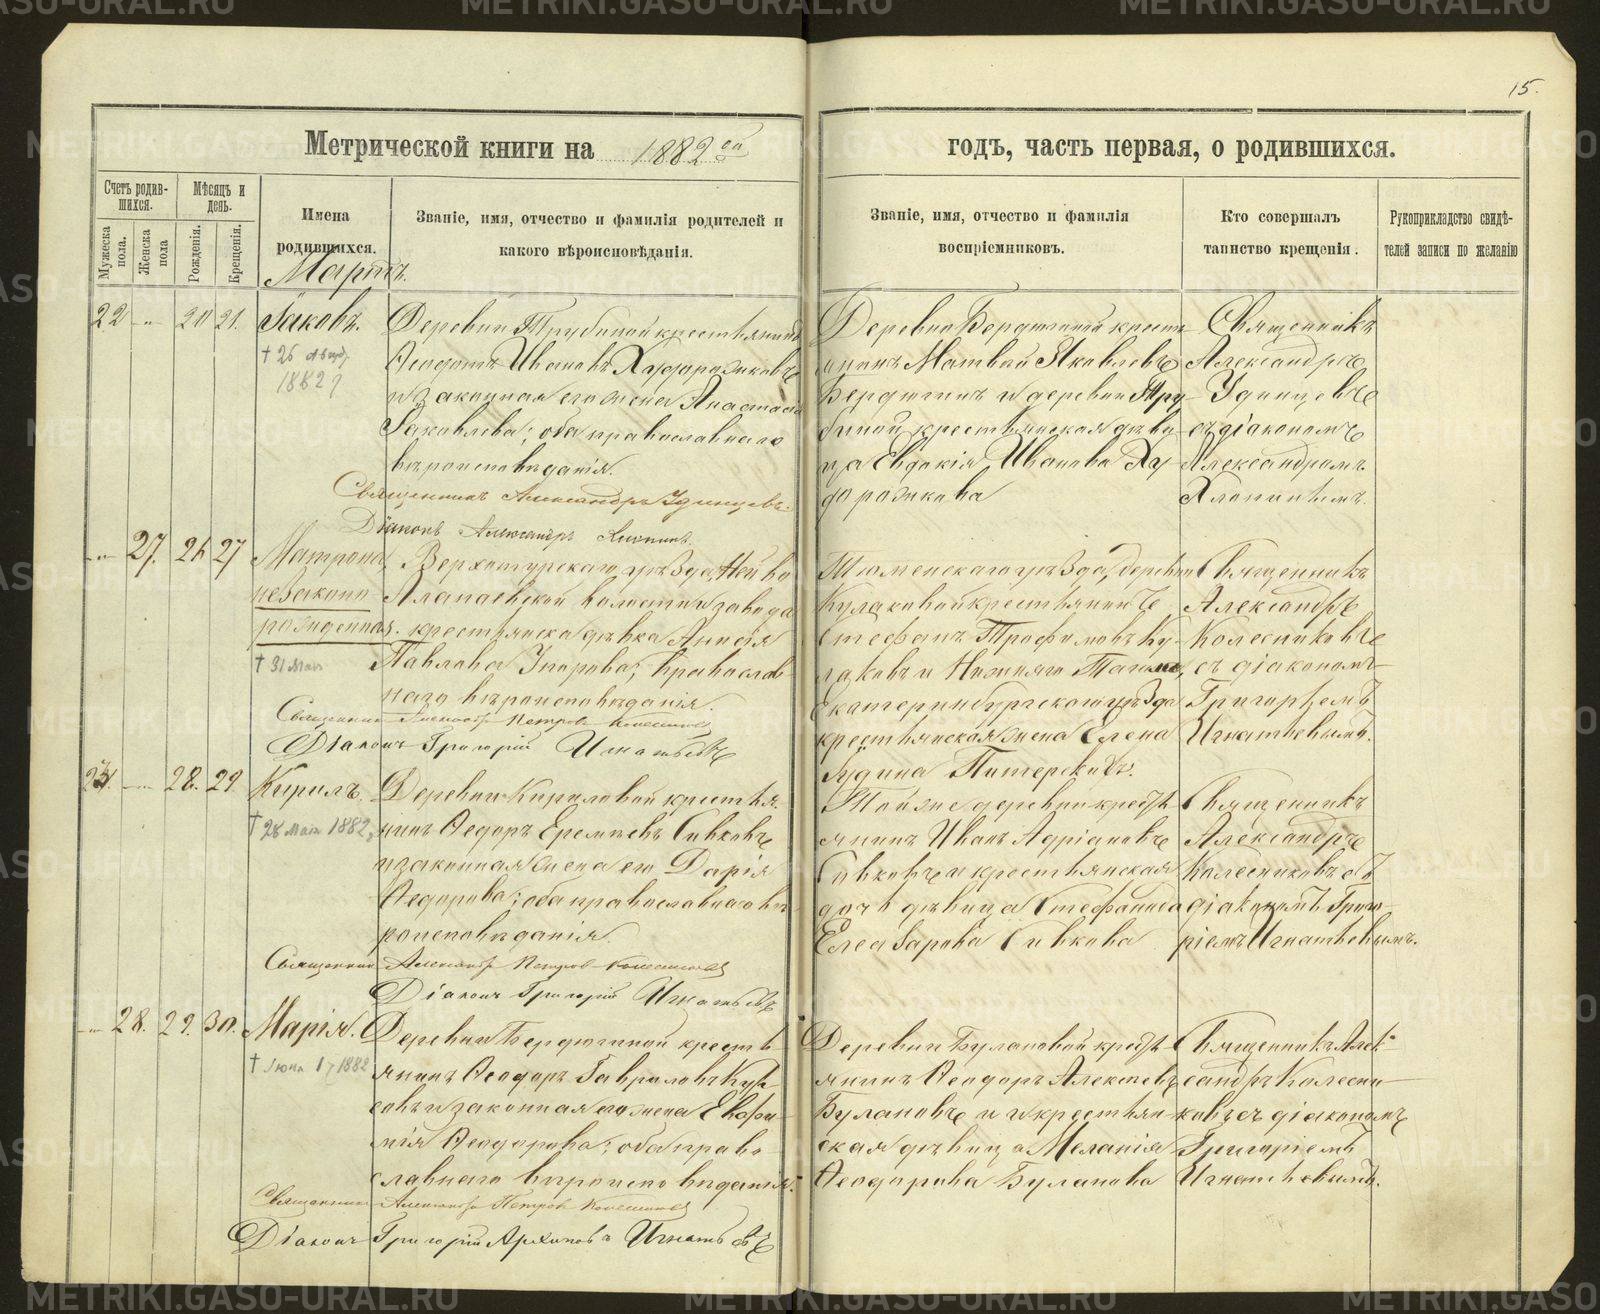 15.
Метрической книги на 1882ой
годъ, часть первая, о родившихся.
Счетъ родив-
шихся.
Мѣсяцъ и
день.
Мужеска
пола.
Женска
пола
Рожденія.
Крещенія.
Имена
родившихся.
Званіе, имя, отчество и фамилія родителей и
какого вѣроисповѣданія.
Званіе, имя, отчество и фамилія
воспріемниковъ.
Кто совершалъ
таинство крещенія.
Рукоприкладство свидѣ-
телей записи по желанію
Мартъ.
22 20 21. Іаковъ.
† 26
1882
Деревни Трубиной крестьянинъ
Ѳеодотъ Ивановъ Худорожковъ
и законная его жена Анастасія
Іаковлева; оба православнаго
вѣроисповѣданія.
Священникъ Александръ Удинцевъ.
Діаконъ Александръ Хлопинъ.
Деревни Бердюгиной кресть-
янинъ Матвей Яковлевъ
Бердюгинъ и деревни Тру-
биной крестьянская дѣви-
ца Евдокія Иванова Ху-
дорожкова
Священникъ
Александръ
Удинцевъ
съ діакономъ
Александромъ
Хлопинымъ.
27. 26 27 Матрона
незаконо
рожденная.
† 31 Мая
Верхотурскаго уѣзда, Нейво
Алапаевской волости и завода
крестьянска дѣвка Анисія
Павлова Упорова; православ-
наго вѣроисповѣданія.
Священникъ Александръ Петровъ Колесниковъ
Діаконъ Григорій Игнатьевъ
Тюменскаго уѣзда, деревни
Кулаковой крестьянинъ
Стефанъ Трофимовъ Ку-
лаковъ и Нижняго Тагила,
Екатеринбургскаго уѣзда
крестьянская жена Елена
Священникъ
Александръ
Колесниковъ
съ діакономъ
Григоріемъ
Игнатьевымъ.
23. 28. 29. Кирилъ.
† 28 Мая 1882
Деревни Кириловой крестья-
нинъ Ѳеодоръ Еремѣевъ Сивковъ
и законная жена его Дарія
Ѳедорова; оба православнаго вѣ-
роисповѣданія.
Священникъ Александръ Петровъ Колесниковъ
Діаконъ Григорій Игнатьевъ
Той же деревни кресть-
янинъ Иванъ Адріановъ
Сивковъ и крестьянская
дочь дѣвица Стефанида
Елеазарова Сивкова
Священникъ
Александръ
Колесниковъ съ
діакономъ Григо-
ріемъ Игнатьевымъ.
28. 29. 30. Марія.
† Іюня 17 1882
Деревни Бердюгиной кресть-
янинъ Ѳеодоръ Гавриловъ
и законная его жена Евфи-
мія Ѳеодорова; оба право-
славнаго вѣроисповѣданія.
Священникъ Александръ Петровъ Колесниковъ
Діаконъ Григорій Архиповъ Игнатьевъ
Деревни Булановой кресть-
янинъ Ѳеодоръ Алексѣевъ
Булановъ и крестьян-
ская дѣвица Меланія
Ѳеодорова Буланова
Священникъ Алек-
сандръ Колесни-
ковъ съ діакономъ
Григоріемъ
Игнатьевымъ.
METRIKI.GASO-URAL.RU